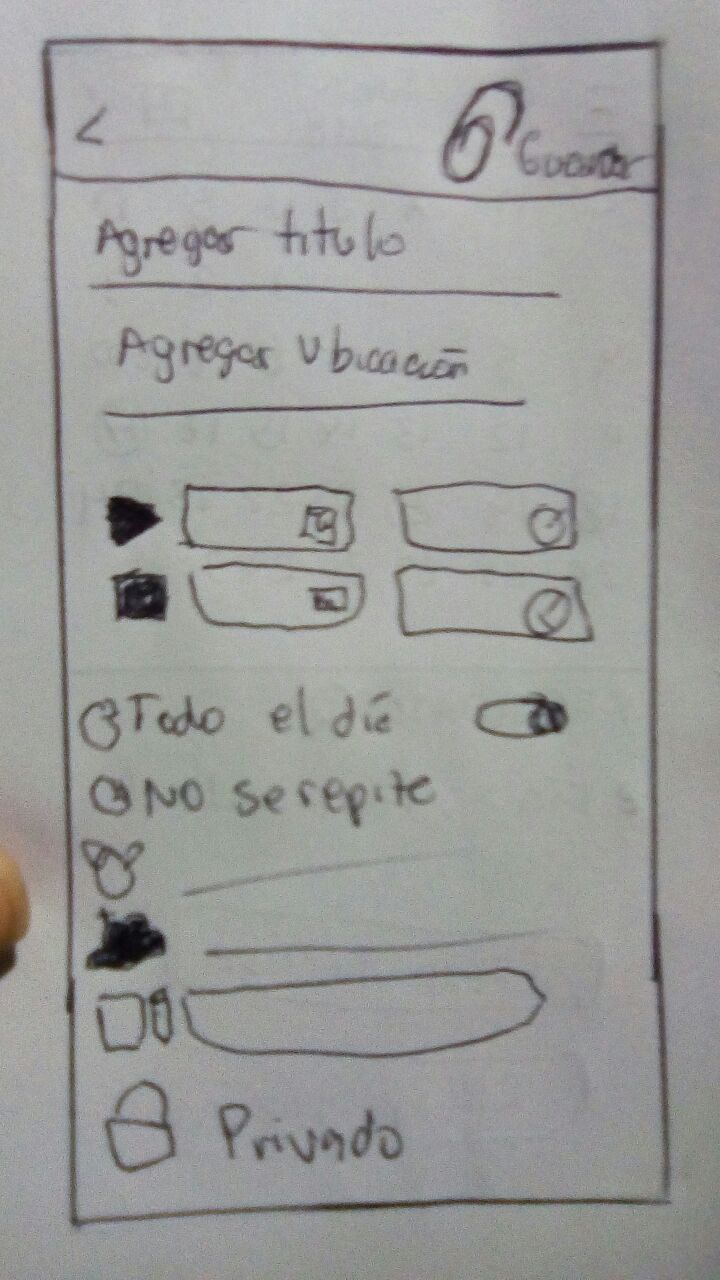 Guardar
Agregar titulo
Agregar Ubicación
Todo el día
No se repite
Privado